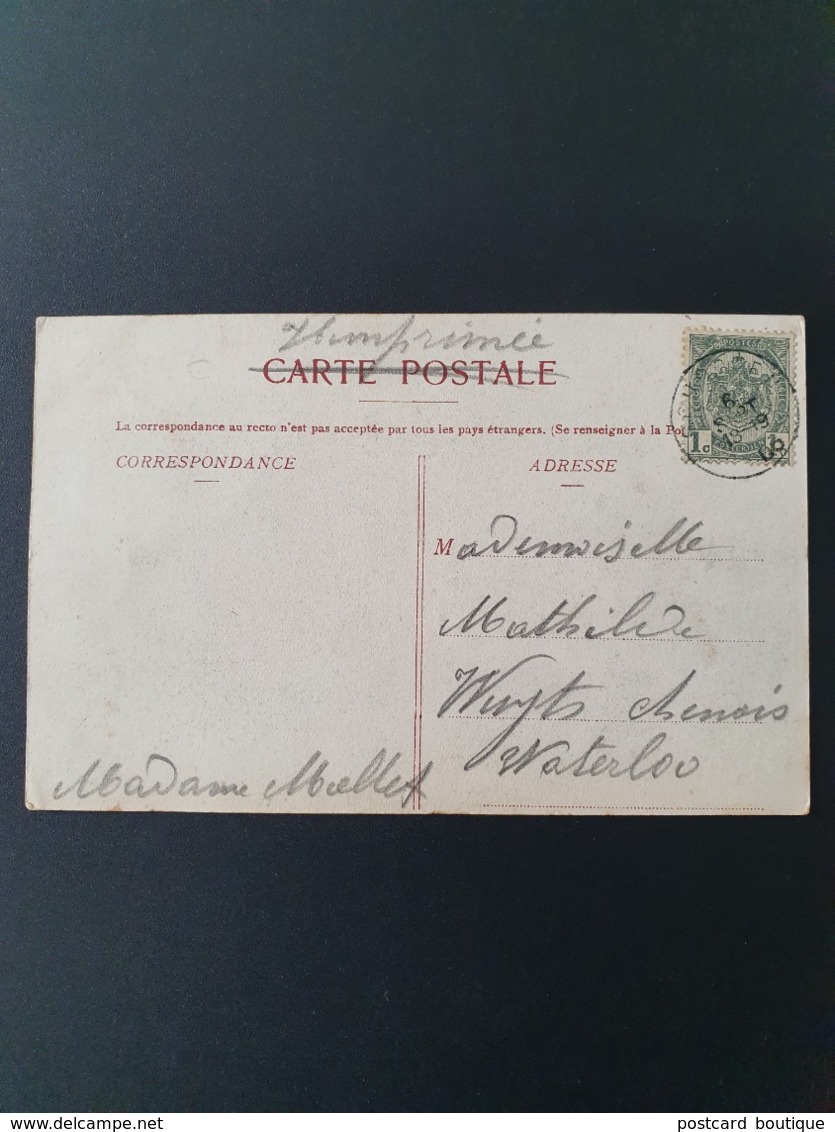 Himprimée
CARTE POSTALE
La correspondance au recto n'est pas acceptée par tous les pays étrangers. (Se renseigner à la Po
CORRESPONDANCE
ADRESSE
POSTES
1c
Mademoiselle
Mathilde
Wuyts chenois
Waterloo
Madame Mollet
postcard boutique